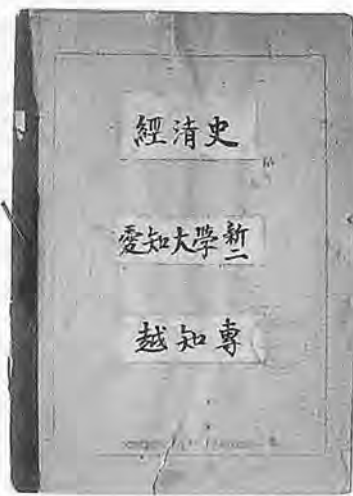 經清史
愛知大學新二
越知專